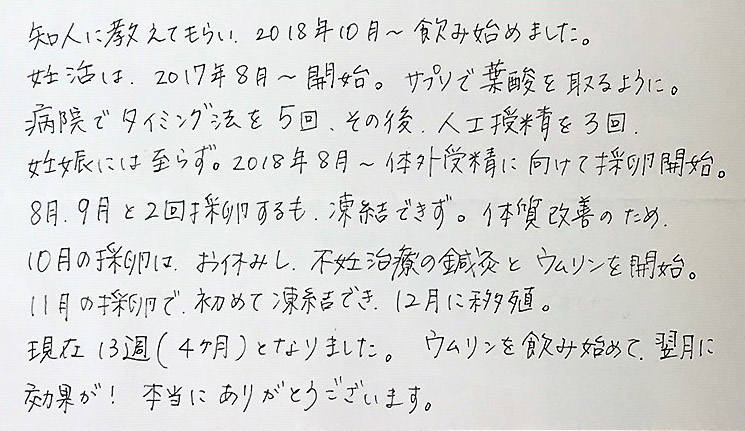 知人に教えてもらい、2018年10月～飲み始めました。
妊活は、2017年8月～開始。サプリで葉酸を取るように。
病院でタイミング法を5回、その後、人工授精を3回、
妊娠には至らず。2018年8月～体外受精に向けて採卵開始。
8月、9月と2回採卵するも、凍結できず。体質改善のため、
10月の採卵は、お休みし、不妊治療の鍼灸とウムリンを開始。
11月の採卵で、初めて凍結でき、12月に移殖。
現在13週(4ヶ月)となりました。ウムリンを飲み始めて、翌月に
効果が！本当にありがとうございます。